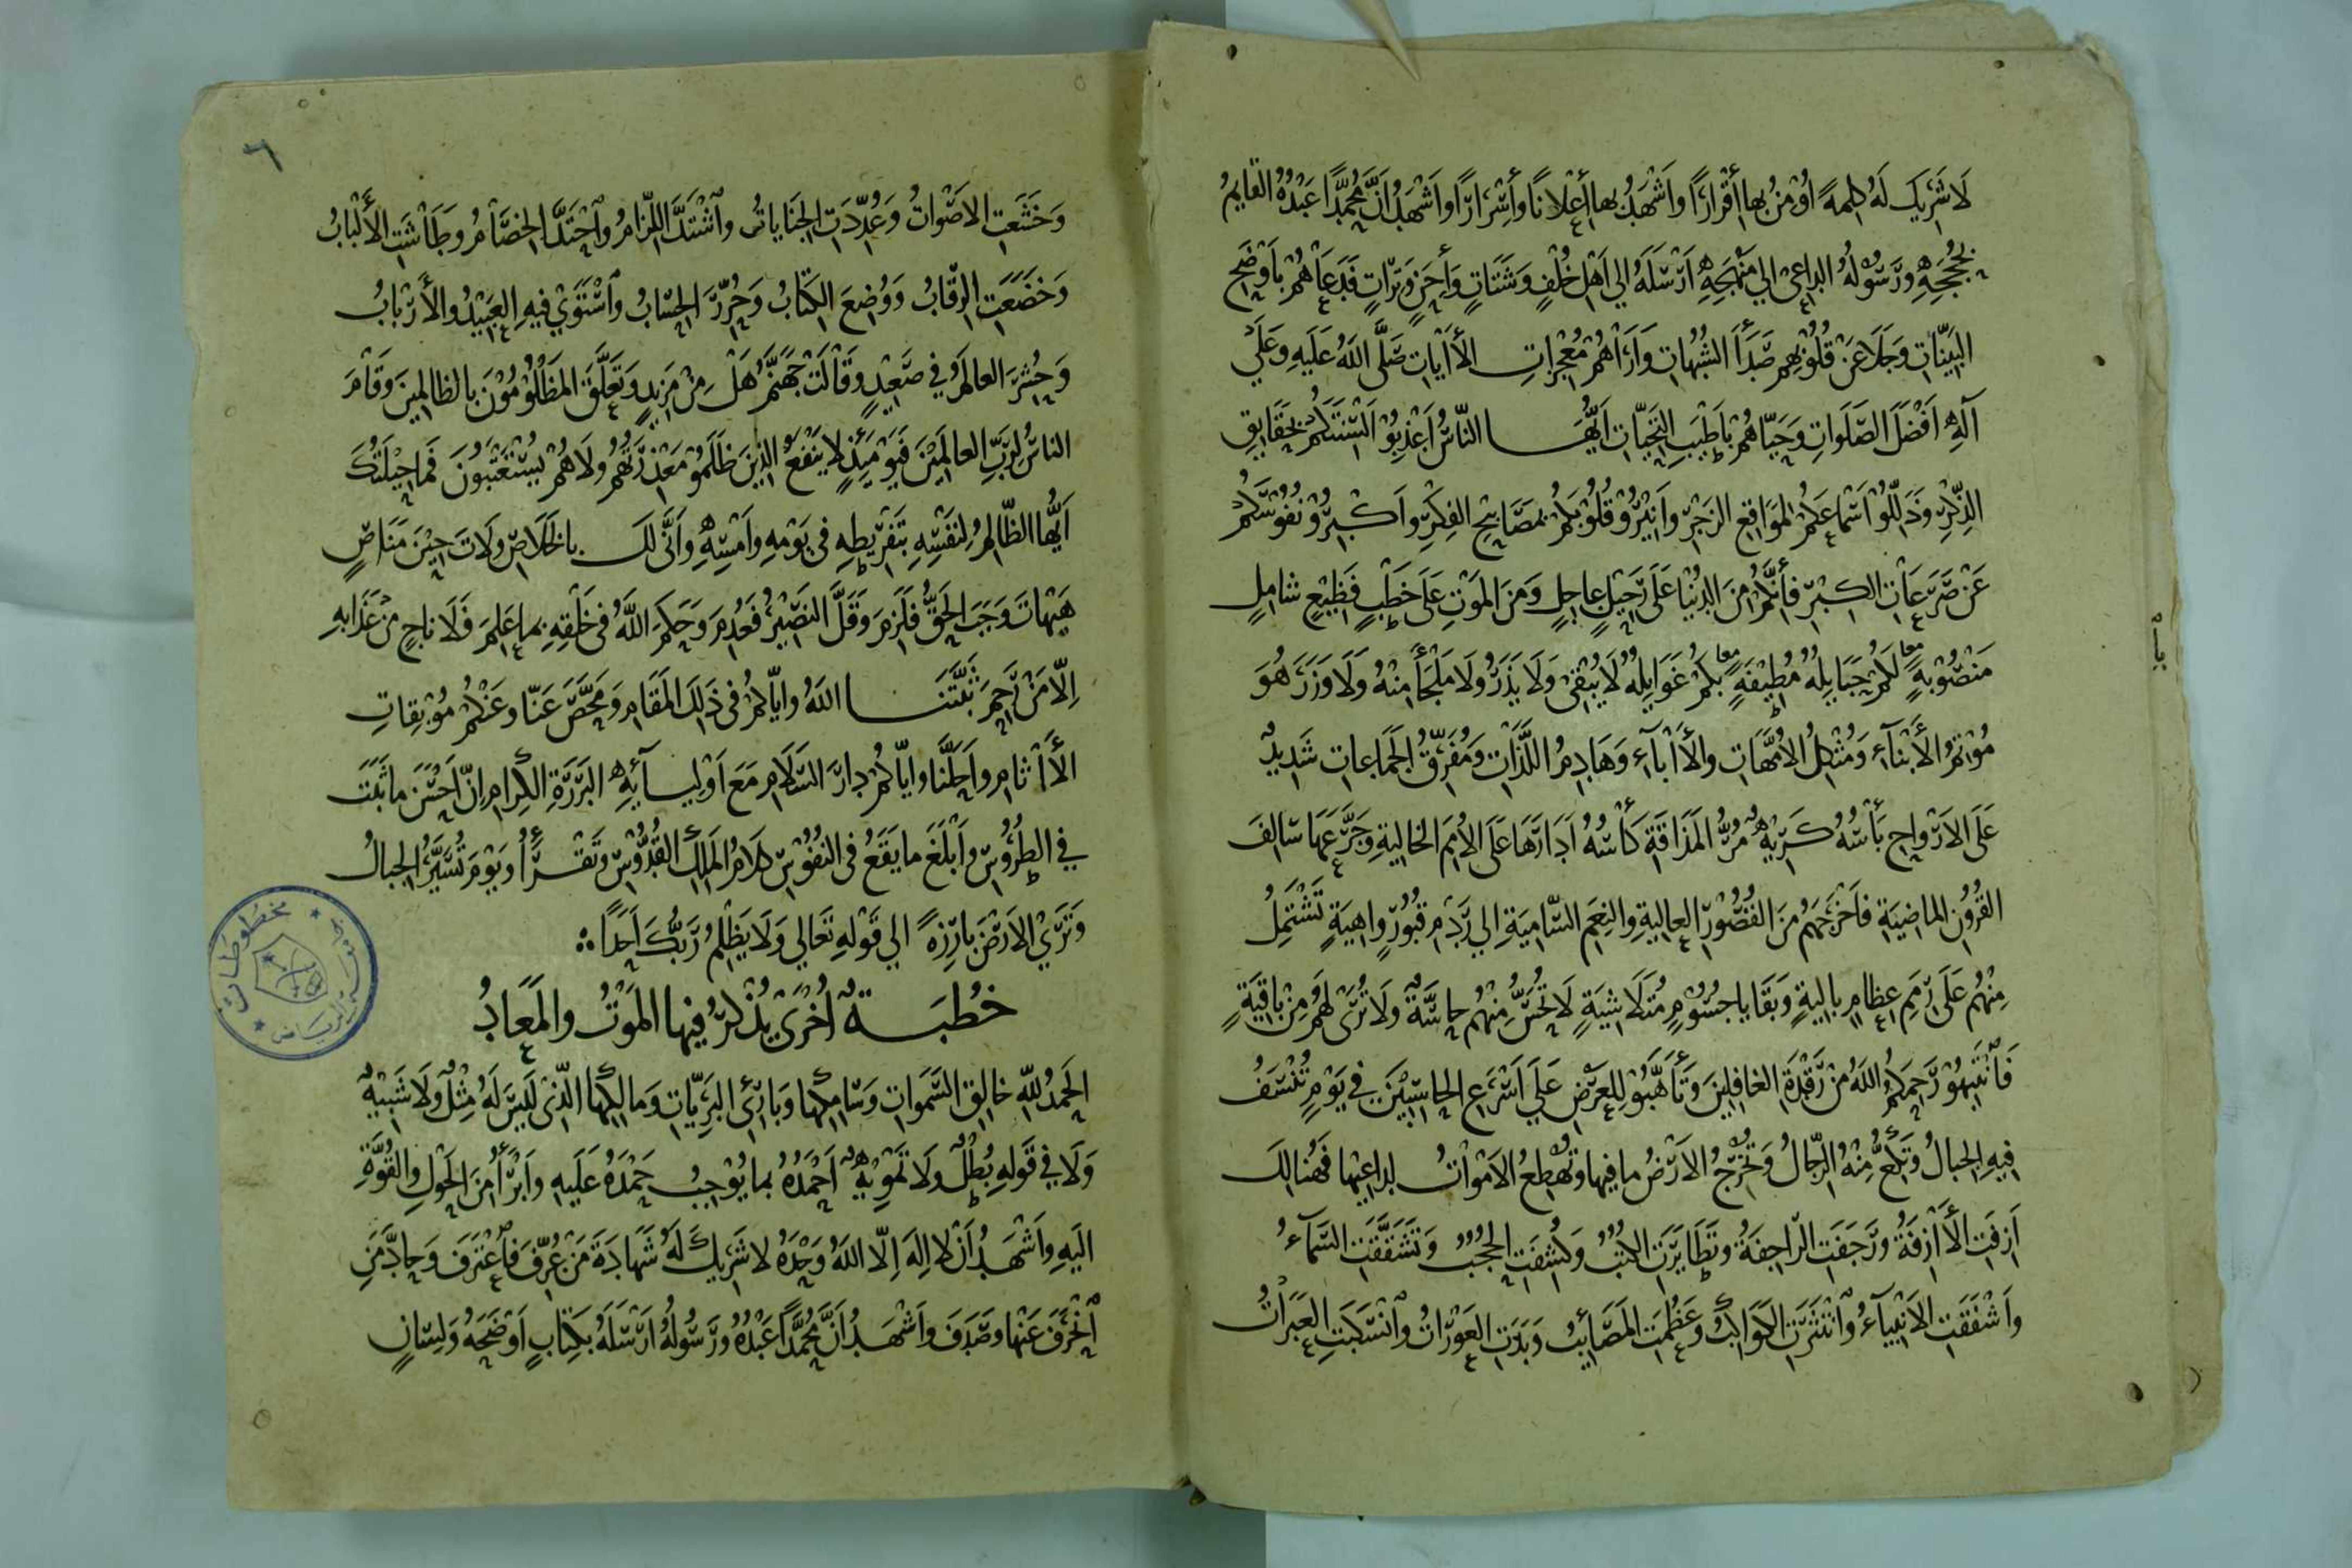 لَا شَرِيكَ لَهُ كَلِمَةً أُوْمِنُ بها أَقْرَارًا وأَشْهَدُ بها أَعْلَانًا وأَسْرَارًا وأَشْهَدُ أَنَّ مُحَمَّدًا عَبْدُهُ القايمُ
بِحُجَجِهِ ورَسُولُهُ الداعى الي مَنْهَجِهِ أَرْسَلَهُ الي أَهْلِ خُلْفٍ وَشَتَاتٍ وَأَحَنٍ وَتِرَاتٍ فَدَعَاهُمْ بأَوْضَحِ
البَيِّنَاتِ وَجَلَا عَنْ قُلُوبِهِم صَدَأَ الشُّبُهاتِ وَأَرَاهُمْ مُعْجِزاتِ الأَايَاتِ صَلَّى اللهُ عَلَيهِ وَعَلَي
آلِهِ أَفْضَلَ الصَّلَوَاتِ وَحَيَّاهُمْ بأَطْيَبِ التحيَّاتِ أَيُّهَا الناسُ أَعْذِبُوا أَلْسِنَتَكُمْ بحَقَايقِ
الذِّكْرِ وذَلِّلُوْ أَسْمَاعَكُمْ لمَوَاقِعِ الزَجْرِ وأَنِيْرُوْ قُلُوْبَكُمْ بمَصَابِيْحِ الفِكْرِ وأَكْبِرُوْ نُفُوْسَكُمْ
عَنْ صَرَعَاتِ الكِبْرِ فأِنَّكُمْ مِنَ الدُنْيَا عَلَى رَحِيْلٍ عاجِلٍ وَمِنَ المَوْتِ عَلَى خَطْبٍ فَظِيْعٍ شامِلٍ
مَنْصُوْبهٍ لَكُمْ حَبَايِلُهُ مُطِيْفَهٍ بكُمْ غَوَايِلُهُ لَا يُبْقى وَلَا يَذَرُ ولَا مَلْجَأَ مِنْهُ وَلَا وَزَرَ هُوَ
مُوْتِمُ الأَبْنَآءِ وَمُثْكِلُ الأُمَّهَاتِ والأَابآءِ وَهَادِمُ اللَّذَاتِ وَمُفَرِّقُ الجَمَاعاتِ شَدِيدٌ
عَلَى الأَرْوَاحِ بَأْسُهُ كَرِيْهٌ مُرُّ المَذَاقَةِ كَأْسُهُ أَدَارَهَا عَلَى الأُمَمِ الخاليةِ وجَرَّعَهَا سَالفَ
القُرُوْنِ الماضِيَةِ فأَخْرَجَهُمْ مِنَ القُصُوْرِ العاليةِ والنِعَمِ السَّامِيَةِ الي رَدْمِ قبُوْرٍ واهِيَةٍ تَشْتَمِلُ
مِنْهُمْ عَلَى رِمَمِ عِظَامٍ باليةٍ وَبَقَايا جسُوْمٍ مُتَلَاشِيَةٍ لَا تُحَسُّ مِنْهُمْ حاسَّةٌ ولَا تُرَى لهُمْ مِنْ باقِيَةٍ
فَأنْتَبِهُوْ رَحِمَكُمُ اللهُ مِنْ رَقْدَةِ الغافِلِينَ وَتَأَهَّبُوْ لِلعَرْضِ عَلَي أَسْرَعِ الحاسِبِيْنَ في يَوْمٍ تُنْسَفُ
فِيهِ الجبالُ وتُبْلَعُ مِنْهُ الرِمالُ وَتُخْرِجُ الأَرْضُ ما فيها وتُهْطِعُ الأَمْوَاتُ لداعِيْها فهُنالكَ
أَزِفَتِ الأَازِفَةُ ورَجَفَتِ الرّاجِفَةُ وتَطَايَرَتِ الكتُبُ وَكُشِفَتِ الحُجُبُ وَتَشَقَّقَتِ السَّمآءُ
وأَشْفَقَتِ الأَنْبيآءُ وأنْتَثَرَتِ الكَوَاكبُ وعَظُمَتِ المَصَائِبُ وَبَدَتِ العَوْرَاتُ وأنْسَكَبَتِ العَبَرَاتُ
٦
وَخَشَعَتِ الأَصْوَاتُ وَعُدِّدَتِ الجِنَاياتُ وأشْتَدَّ اللِّزَامُ وأحْتَدَّ الخِصَامُ وطَاشَتِ الأَلْبَابُ
وَخَضَعَتِ الرِّقَابُ وَوُضِعَ الكتَابُ وَحُرِّرَ الحِسَابُ وأسْتَوَيْ فيهِ العَبيْدُ والأَرْبَابُ
وَحُشِرَ العالَمُ في صَعِيْدٍ وقَالَتْ جَهَنَّمُ هَلْ مِنْ مَزِيدٍ وَتَعَلَّقَ المَظْلُوْمُوْنَ بالظالمينَ وَقَامَ
الناسُ لِرَبِّ العالَمِيْنَ فَيَوْمَئِذٍ لا يَنْفَعُ الذِينَ ظَلَمُوْ مَعْذِرَتُهُمْ ولَا هُمْ يُسْتَعْتَبُونَ فَما حِيْلَتُكَ
أَيُّها الظَّالِمُ لِنَفْسِهِ بتَفْرِيْطِهِ في يَوْمِهِ وأَمْسِهِ وأَنَّى لَكَ بالخَلَاصِ ولَاتَ حِيْنَ مَنَاصٍ
هَيْهَاتَ وَجَبَ الحَقُّ فَلَزِمَ وَقَلَّ النَصِيْرُ فَعُدِمَ وَحَكَمَ اللهُ في خَلْقِهِ بما عَلِمَ فَلَا ناجٍ مِنْ عَذَابهِ
اِلّا مَنْ رَحِمَ ثَبَّتَنَا اللهُ وايَّاكُمْ في ذَلِكَ المَقَامِ وَمَحَّصَ عَنَّا وعَنْكُمْ مُوْبِقاتِ
الأَاثامِ وأَحَلَّنا وايَّاكُمْ دارَ السَلَامِ مَعَ أَوْليآئِهِ البَرَرَةِ الكِرامِ اِنَّ أَحْسَنَ ما ثَبَتَ
في الطُرُوْسِ وأَبْلَغَ ما يَقَعُ في النُفُوْسِ كلَامُ المَلِكِ القُدُّوْسِ وتَقْرَأُ وَيَوْمَ تُسَيَّرُ الجبالُ
وَتَرَيْ الأَرْضَ بارِزَهً الي قَوْلهِ تَعَالي وَلَا يَظْلِمُ رَبُّكَ أَحَدًا
خُطْبَةٌ أُخْرَى يُذْكَرُ فيها المَوْتُ والمَعادُ
الحَمدُ للهِ خالِقِ السَّمَوَاتِ وَسَامِكِها وَبَارِئِ البَرِيّاتِ وَمالِكِها الّذى لَيْسَ لَهُ مِثْلٌ ولَا شَبِيْهٌ
وَلَا في قَوْلهِ بُطْلٌ ولَا تَمْوِيْهٌ أَحْمَدُهُ بما يُوْجِبُ حَمْدُهُ عَلَيهِ وأَبْرَأُ مِنَ الحَوْلِ والقُوَّةِ
الَيهِ وأَشْهَدُ أَنْ لا اِلهَ اِلّا اللهُ وَحْدَهُ لا شَرِيكَ لَهُ شَهَادَةَ مَنْ عُرِّفَ فأعْتَرَفَ وَحادَّ مَنِ
أنْحَرَفَ عَنْها وصَدَفَ وأَشْهَدُ أَنَّ مُحَمَّدًا عَبْدُهُ ورَسُولُهُ أَرْسَلَهُ بكِتَابٍ أَوْضَحَهُ وَلِسَانٍ
مخطوطات
الرياض